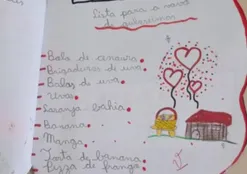 Lista para o nosso
de guloseimas
Bolo de cenoura.
Brigadeiros de uva.
Balas de uva.
Uvas.
Laranja-bahia.
Banana.
Manga.
Torta de banana.
pizza de frango.